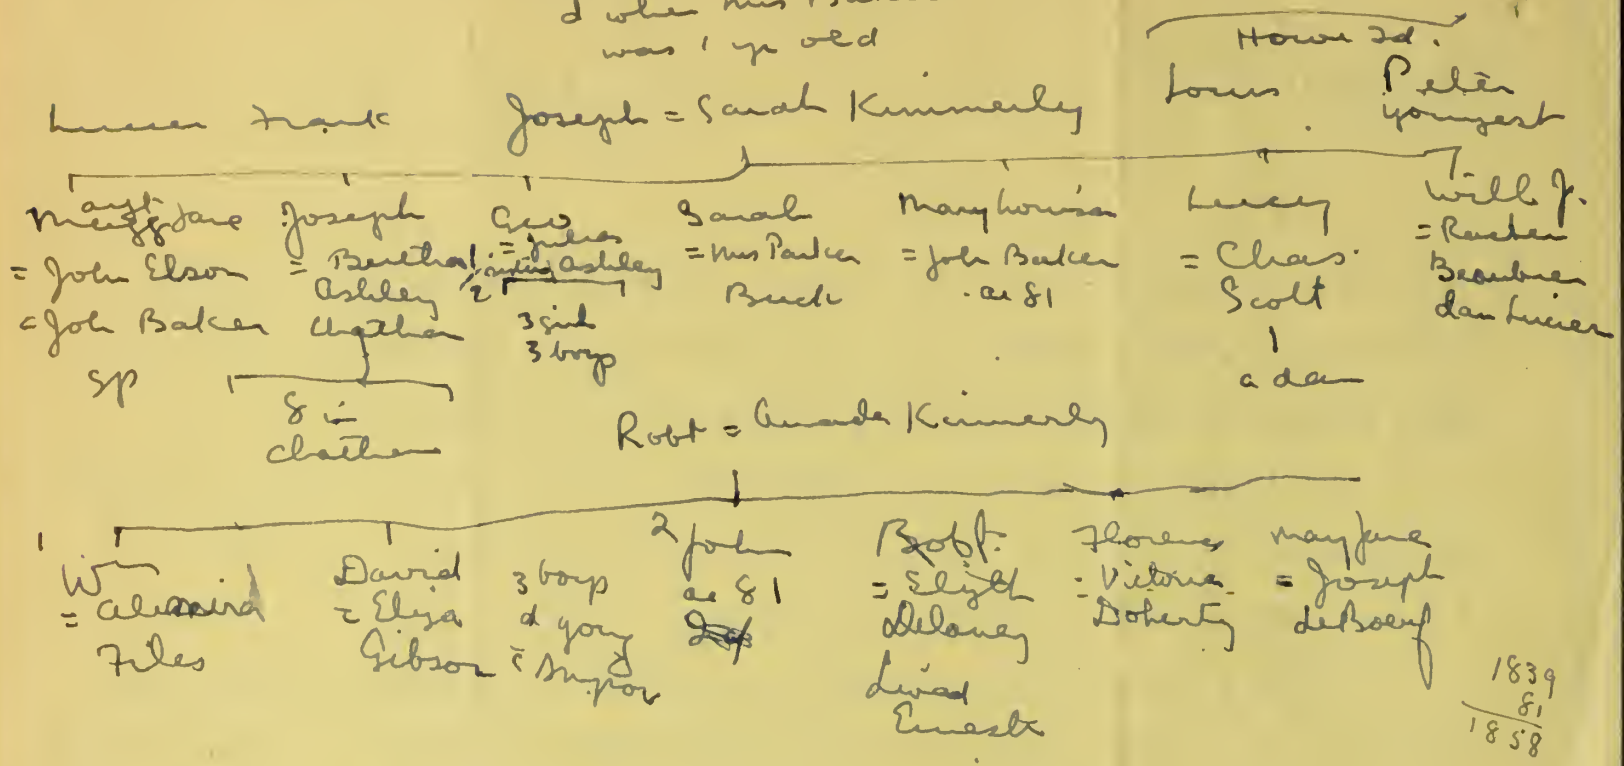 d when Mrs
was 1 yr old
Howe Id.
Frank
Joseph = Sarah Kimmerly
Louis
Peter
youngest
Jane
= John Elson
= John Baker
sp
Joseph
= Bertha
Ashley
Chatham
8 in
Chatham
Geo
Ashley
3 girls
3 boys
Sarah
= Mrs Parker
Buck
Mary Louisa
= John Baker
ae 81
Lucy
= Chas.
Scott
a dau
Will J.
Beaubien
dau Lucier
Robt = Amanda Kimmerly
1
Wm
=
Files
David
= Eliza
Gibson
3 boys
d young
2 John
ae 81
Robt.
= Elizth
Delaney
Ernest
Florence
= Victoria
Doherty
Mary Jane
= Joseph
deBoeuf
1839
81
1858